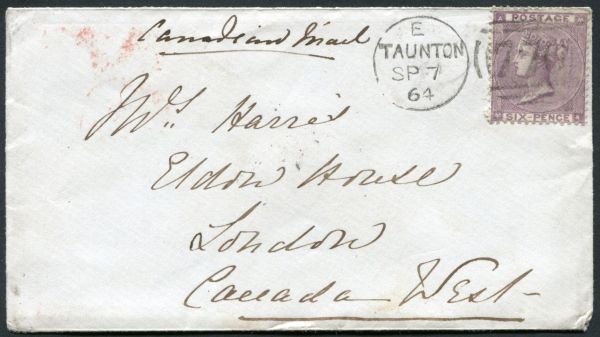 Canadian Mail
E
TAUNTON
SP 7
64
POSTAGE
SIX-PENCE
Mrs Harris
Eldon House
London
Canada West